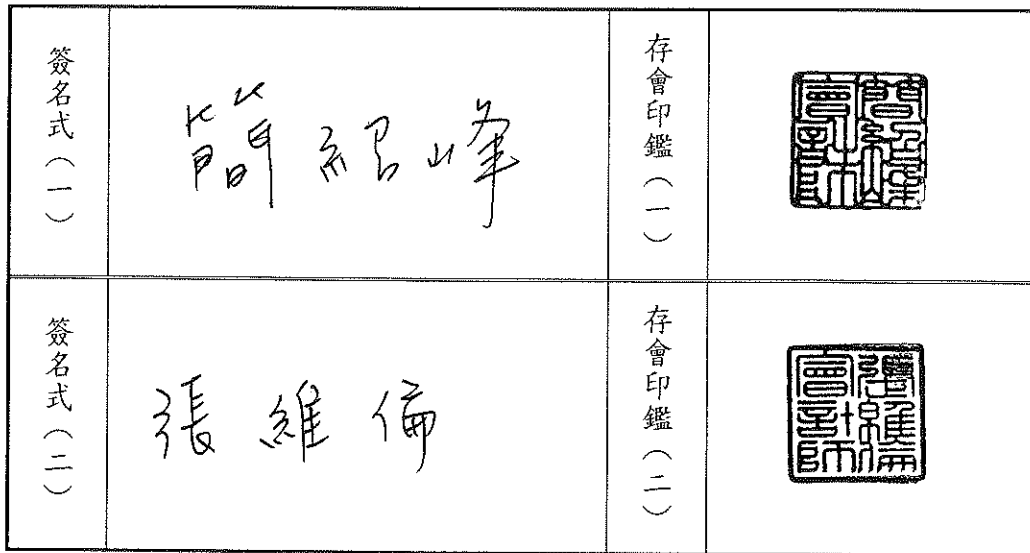 簽名式（一）
簡紹峰
存會印鑑（一）
簽名式（二）
張維倫
存會印鑑（二）
張維倫會計師